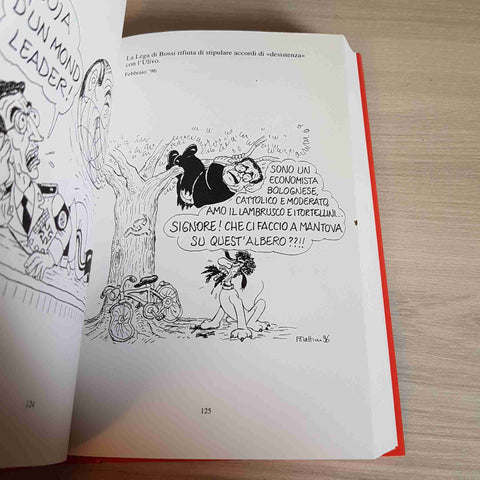 OJA
D'UN MOND
LEADER!
124
La Lega di Bossi rifiuta di stipulare accordi di «desistenza»
con l'Ulivo.
Febbraio '96
SONO UN
ECONOMISTA
BOLOGNESE,
CATTOLICO E MODERATO,
AMO IL LAMBRUSCO E I TORTELLINI...
SIGNORE! CHE CI FACCIO A MANTOVA
SU QUEST'ALBERO??!!
125